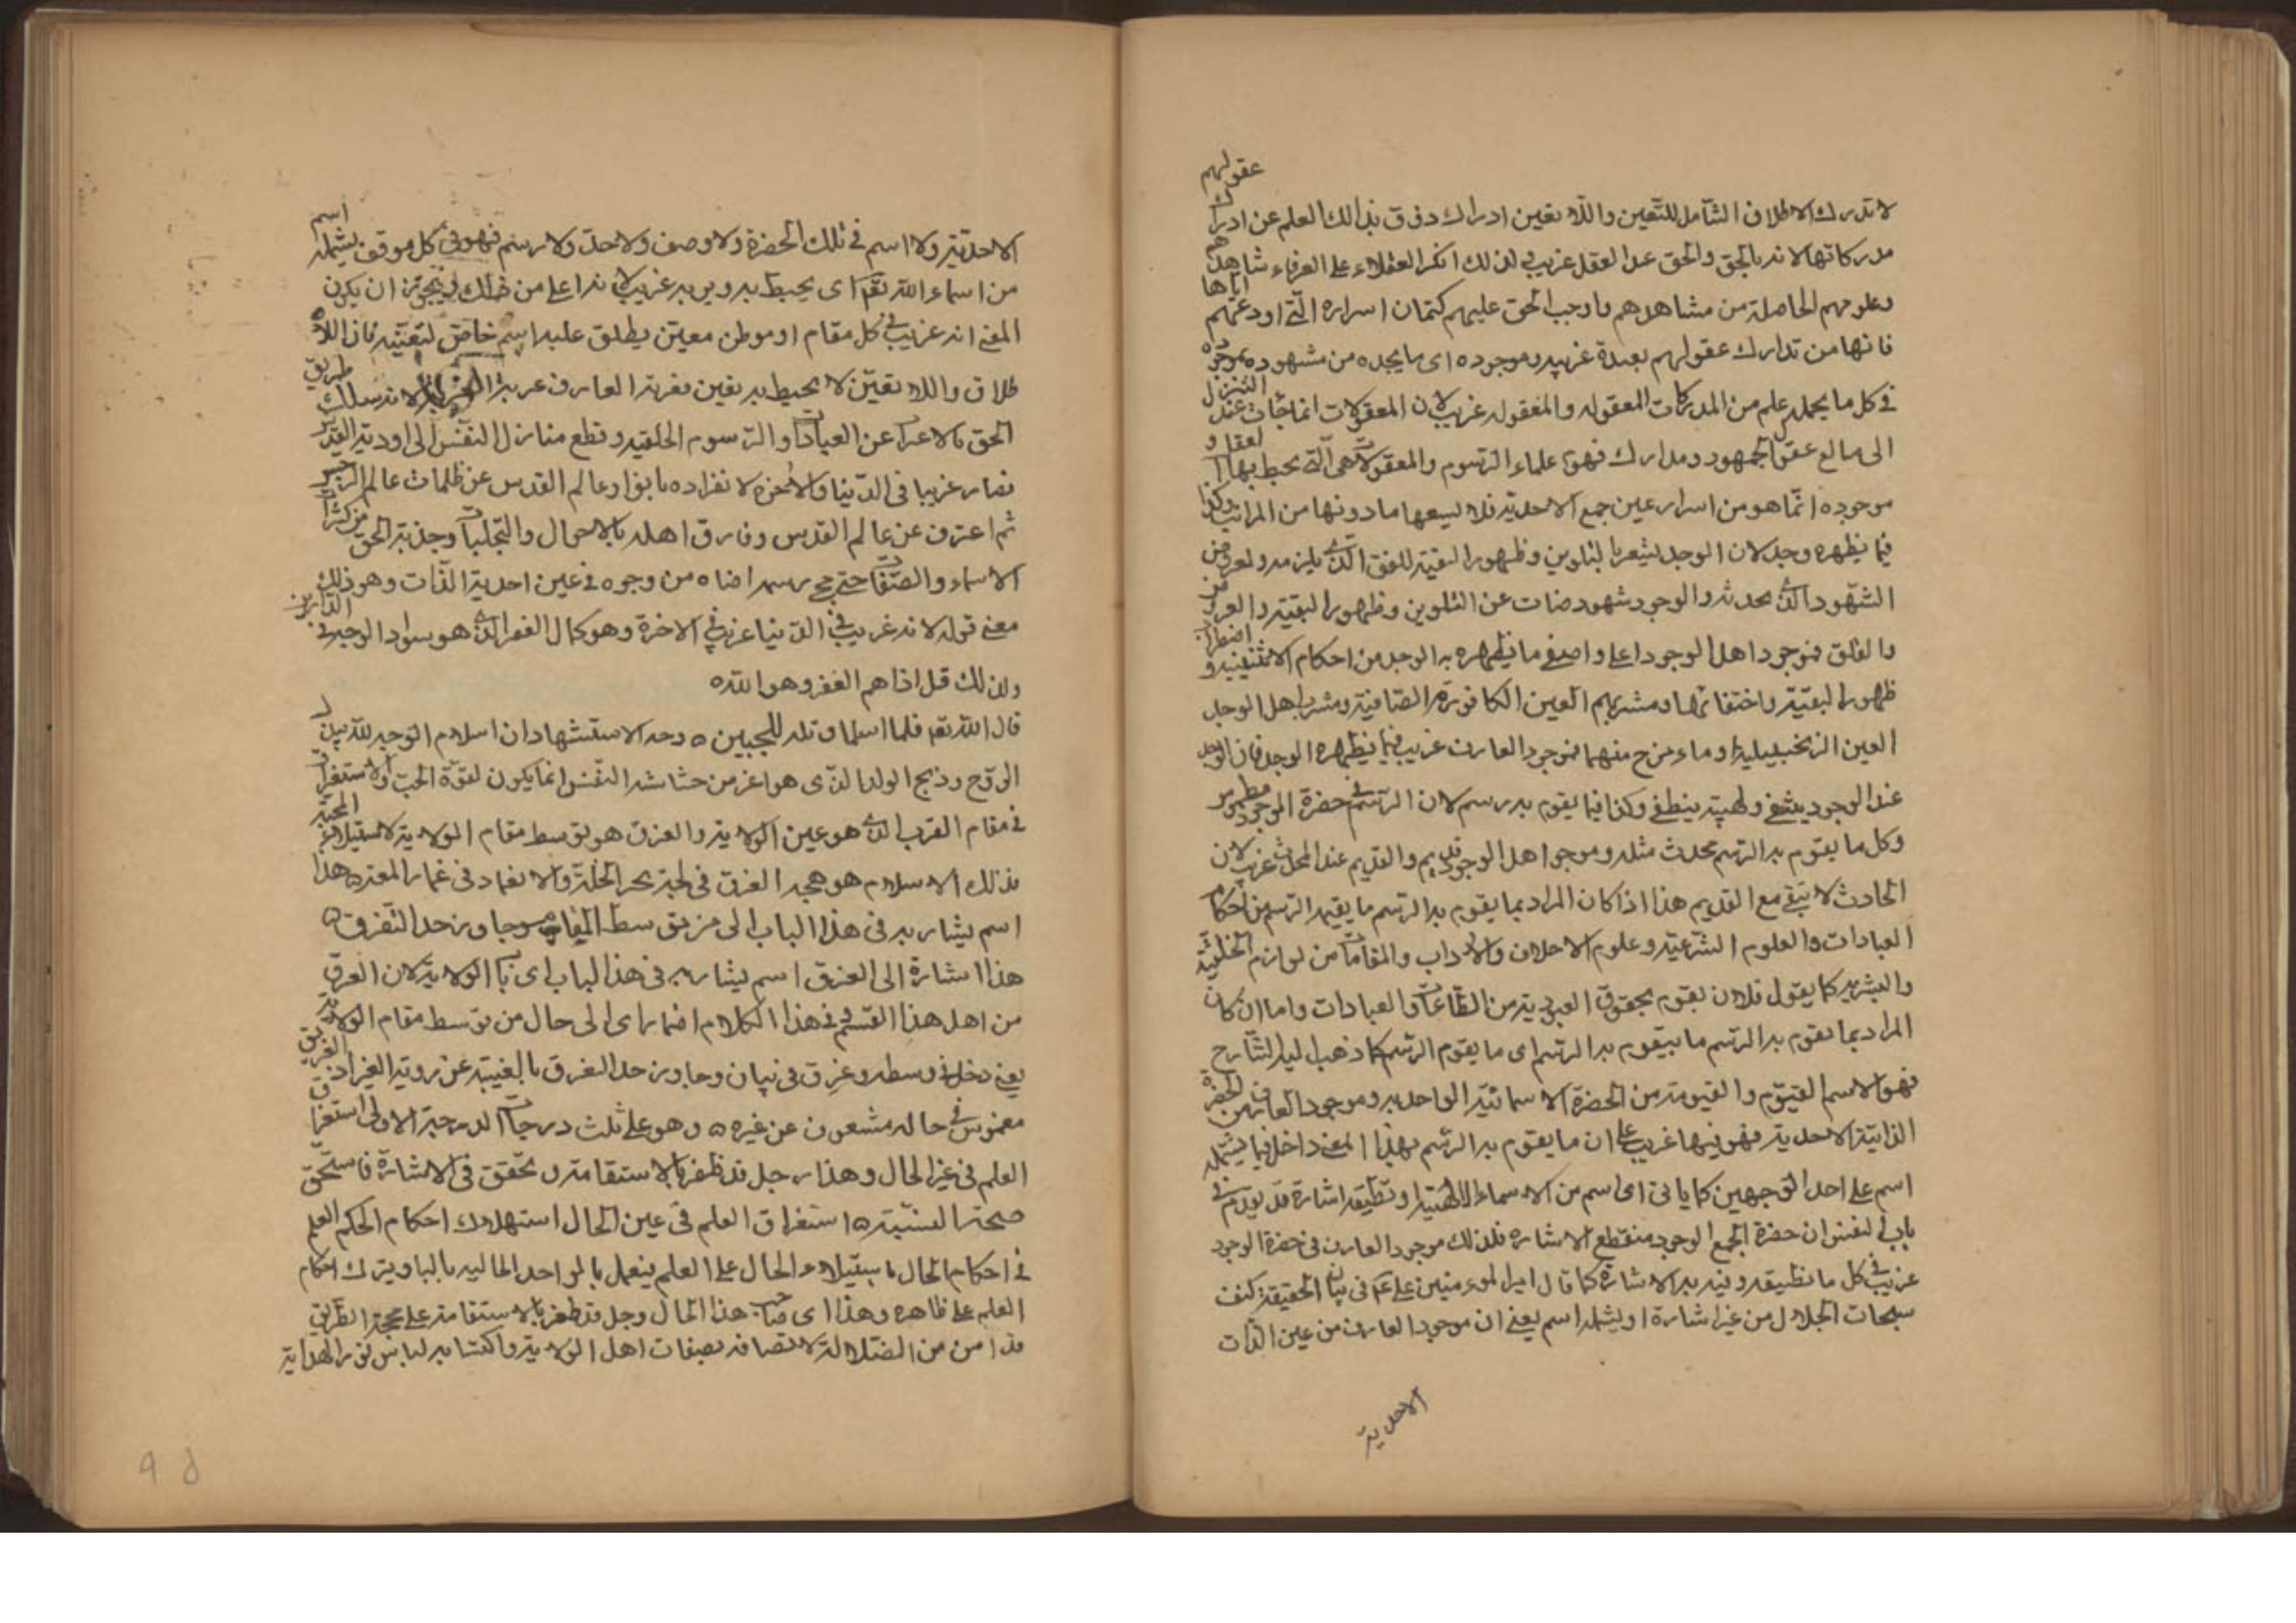 لا تدرك الاطلاق الشامل للتعين واللا تعين ادراك ذوق بذلك العلم عن ادراك عقولهم
مدركاتها لانه بالحق والحق عند العقل غريب لذلك انكر العقلاء على العرفاء مشاهدهم
وعلومهم الحاصلة من مشاهدهم واوجب الحق عليهم كتمان اسراره التي اودعهم اياها
فانها من تدارك عقولهم بعيدة غريبه وموجوده اى ما يجده من مشهوده
في كل ما يحمله علم من المدركات المعقوله والمنقوله غريب لان المعقولات انما جاءت عند التنزل
الى مبالغ عقول الجمهور ومدارك فهوم علماء الرسوم والمعقولات هى التى يحيط بها العقل و
موجوده انما هو من اسرار عين جمع الاحدية فلا يسعها ما دونها من المراتب وكذا
فيما يظهره وجد لان الوجد يشعر بالتلوين وظهور البقية للفقد الذى يلزمه ولعروض
الشهود الذى يحدثه والوجود شهود صاف عن التلوين وظهور البقية والعروض
والقلق فموجود اهل الوجود اعلى واصفى ما يظهره به الوجد من احكام الاثنينية و اضطراب
ظهور البقية واختفائها ومشربهم العين الكافورية الصافية ومشرب اهل الوجد
العين الزنجبيلية او ماء مزج منهما فموجود العارف غريب فيما يظهره الوجد فان الوجد
عند الوجود يشفى ولهيبه ينطفى وكذا فيما يقوم به رسم لان الرسم فى حضرة الوجود مطموس
وكل ما يقوم به الرسم محدث مثله وموجود اهل الوجود قديم والقديم عند المحدث غريب لان
الحادث لا يبقى مع القديم هذا اذا كان المراد بما يقوم به الرسم ما يقيمه الرسم من احكام
العبادات والعلوم الشرعية وعلوم الاخلاق والاداب والمقامات من لوازم الخلقية
والبشريه كما يقول فلان يقوم بحقوق العبودية من الطاعات والعبادات واما ان كان
المراد بما يقوم به الرسم ما يتقوم به الرسم اى ما يقوم الرسم كما ذهب اليه الشارح
فهو الاسم القيوم والقيومة من الحضرة الاسمائية الواحديه وموجود العارف من الحضرة
الذاتية الاحدية فهو فيها غريب على ان ما يقوم به الرسم بهذا المعنى داخل فيما يشمله
اسم على احد الوجهين كما ياتى اى اسم من الاسماء الالهية او تطيقه اشارة قد تقدم فى
باب النفس ان حضرة الجمع الوجود منقطع الاشاره فلذلك موجود العارف فى حضرة الوجود
غريب فى كل ما تطيقه وتفيده الاشارة كما قال امير المؤمنين على ع فى بيان الحقيقة كشف
سبحات الجلال من غير اشارة او يشمله اسم يعنى ان موجود العارف من عين الذات
الاحدية
الاحدية ولا اسم فى تلك الحضرة ولا وصف ولا حد ولا رسم فهو فى كل موقف يشمله اسم
من اسماء الله تعالى اى يحيط به ويريد غريب لانه اعلى من ذلك ويجوز ان يكون
المعنى انه غريب فى كل مقام او موطن معين يطلق عليه اسم خاص لتعينه فان اللا
طلاق واللا تعين لا يحيط به تعين فغربة العارف غربة الغربة لانه سلك طريق
الحق بالاعراض عن العبادات والرسوم الخلقيه وقطع منازل النفس الى اودية القدس
فصار غريبا فى الدنيا والاخرة لانفراده بانوار عالم القدس عن ظلمات عالم الرجس
ثم اعترف عن عالم القدس وفارق اهله بالاحوال والتجليات وجذبة الحق من كثرات
الاسماء والصفات حتى محى رسمه اضاه من وجوه فى عين احدية الذات وهو ذلك
معنى قوله لانه غريب فى الدنيا غريب فى الاخرة وهو كمال الفقر الذى هو سواد الوجه فى الدارين
ولذلك قيل اذا هم الفقر وهو الله
قال الله تعالى فلما اسلما وتله للجبين وجه الاستشهاد ان اسلام الوجه لله ببذل
الروح وذبح الولد الذى هو اعز من حشاشة النفس انما يكون لقوة الحب والاستغراق
فى مقام القرب الذى هو عين الولاية والغرق هو توسط مقام الولاية لاستيلاء المحبة
فذلك الاسلام هو هجبه الغرق فى لجة بحر الخلة والانغماد فى غمار المعتره هذا
اسم يشار به فى هذا الباب الى من توسط المقام وجاوز حد التفرق
هذا اشارة الى الغرق اسم يشار به فى هذا الباب اى باب الولاية لان الغرق
من اهل هذا القسم وفى هذا الكلام اضمار اى الى حال من توسط مقام الولاية
يعنى دخل فى وسطه وغرق فى تيار وجاوز حد التفرق بالغيبة عن روية الغير اذ الغريق
مغموس فى حاله مشعوف عن غيره وهو على ثلث درجات الدرجة الاولى استغراق
العلم فى عين الحال وهذا رجل قد ظفر بالاستقامة وتحقق فى الاشارة فاستحق
صحة النسبة استغراق العلم فى عين الحال استهلاك احكام الحكم العلم
فى احكام الحال باستيلاء الحال على العلم فيعمل بالمواجد الحاليه بالبا ويترك احكام
العلم على ظاهره وهذا اى صاحب هذا الحال رجل قد ظفر بالاستقامة على محجة الطريق
فقد امن من الضلالة لاتصافه بصفات اهل الولاية واكتسابه لباس نور الهداية